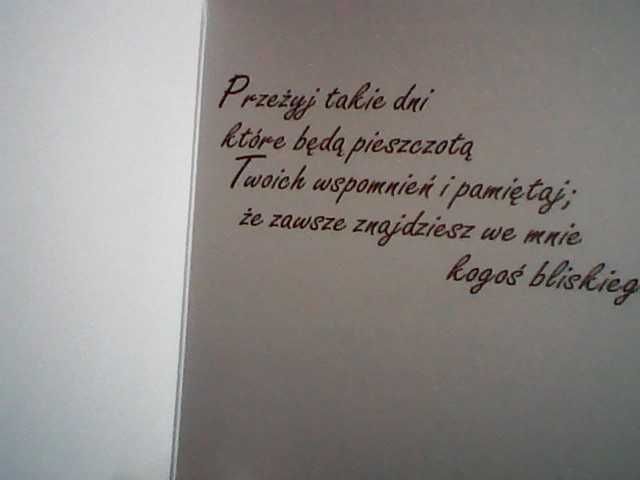 Przeżyj takie dni
które będą pieszczotą
Twoich wspomnień i pamiętaj;
że zawsze znajdziesz we mnie
kogoś bliskieg